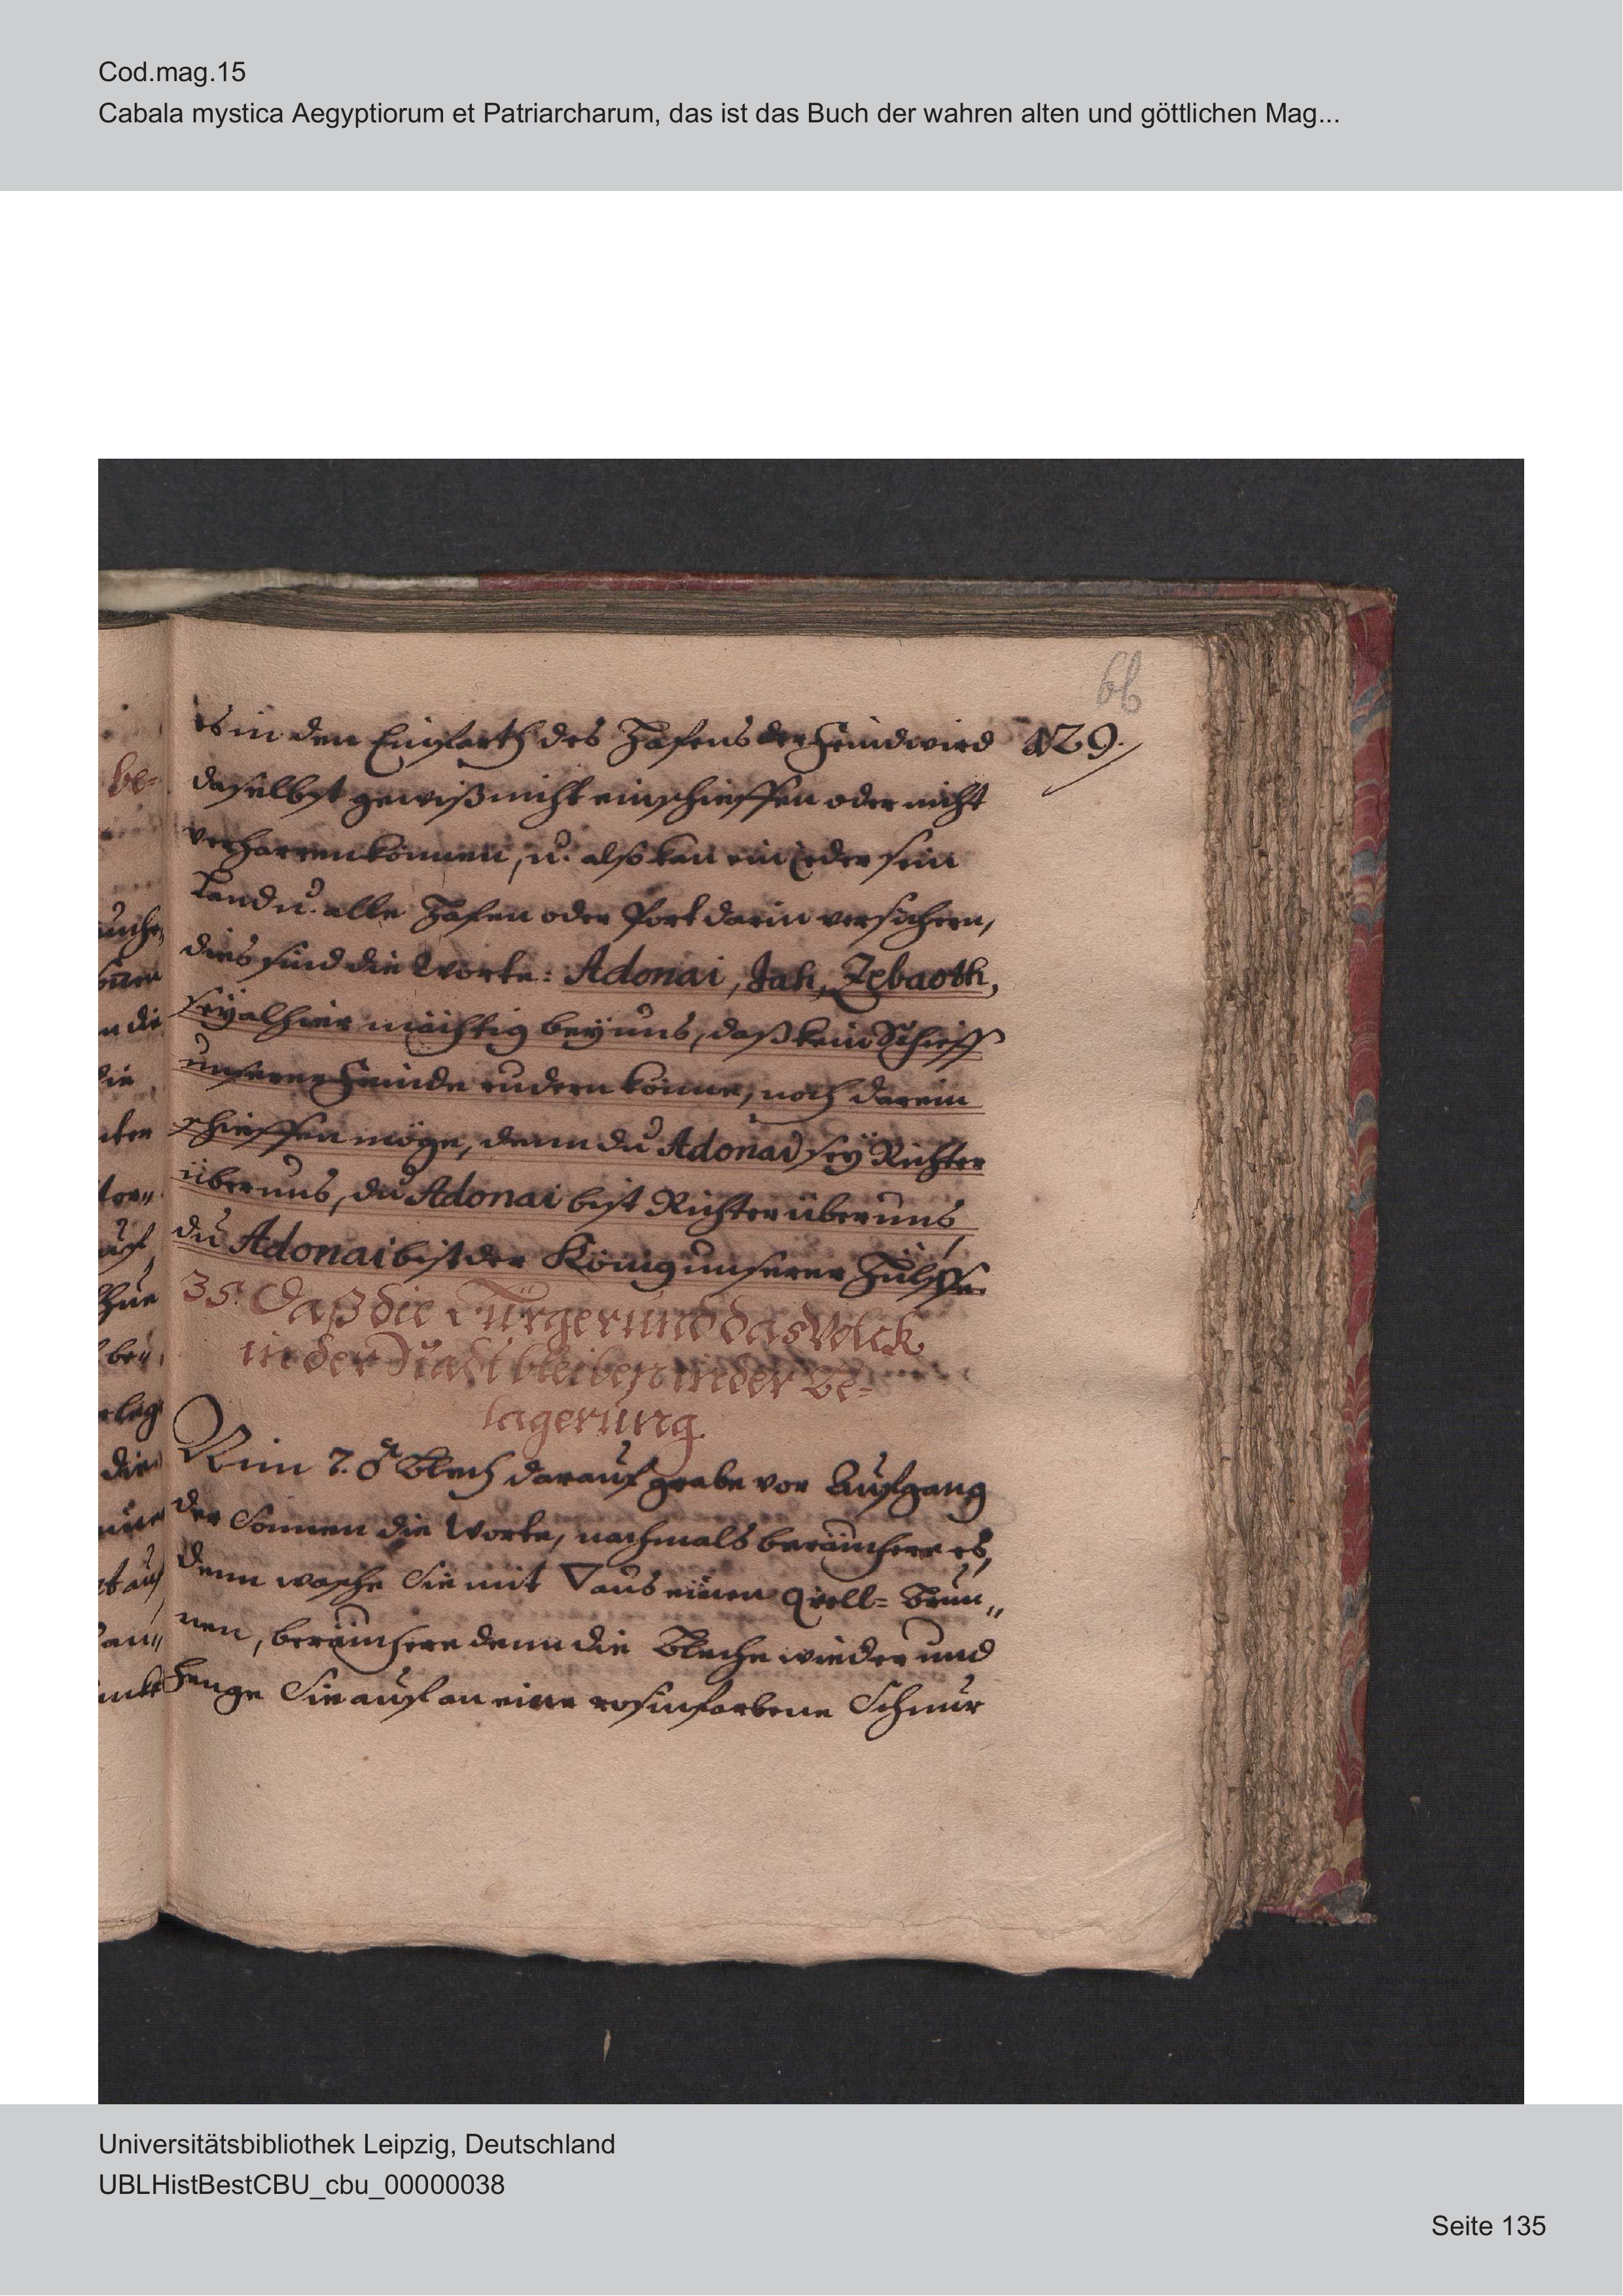 Cod.mag.15
Cabala mystica Aegyptiorum et Patriarcharum, das ist das Buch der wahren alten und göttlichen Mag...
66
es in den Einfarth des Hafens der Feind wird 129.
daselbst gewiß nicht einschieffen oder nicht
verharren können, u. also kan ein jeder sein
Land u. alle Hafen oder Port darin versichern,
dies sind die Worte: Adonai, Jah, Zebaoth,
sey alhier mächtig bey uns, daß kein Schieff
unserer Feinde rudern könne, noch darein
schieffen möge, denn du Adonai sey Richter
über uns, du Adonai bist Richter über uns,
du Adonai bist der König unserer Hülffe.
35. Daß die Bürger und das Volck
in der Stadt bleiben in der Be-
lagerung.
Nim 7. ♂ Blech darauf grabe vor Aufgang
der Sonnen die Worte, nachmals beräuchere es,
denn wasche Sie mit ▽ aus einen Qvell- Brun„
nen, beräuchere denn die Bleche wieder und
henge Sie auf an eine rosinfarbene Schnur
Universitätsbibliothek Leipzig, Deutschland
UBLHistBestCBU_cbu_00000038
Seite 135